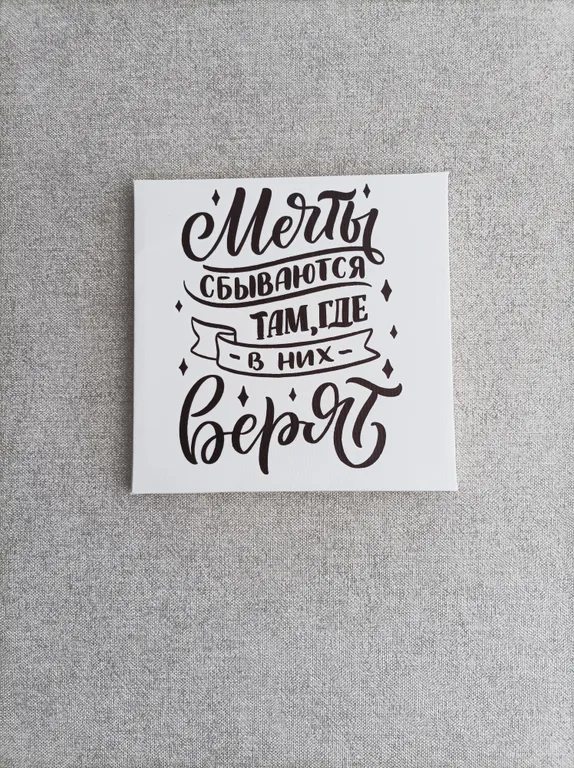 Мечты
СБЫВАЮТСЯ
ТАМ, ГДЕ
- В НИХ -
верят